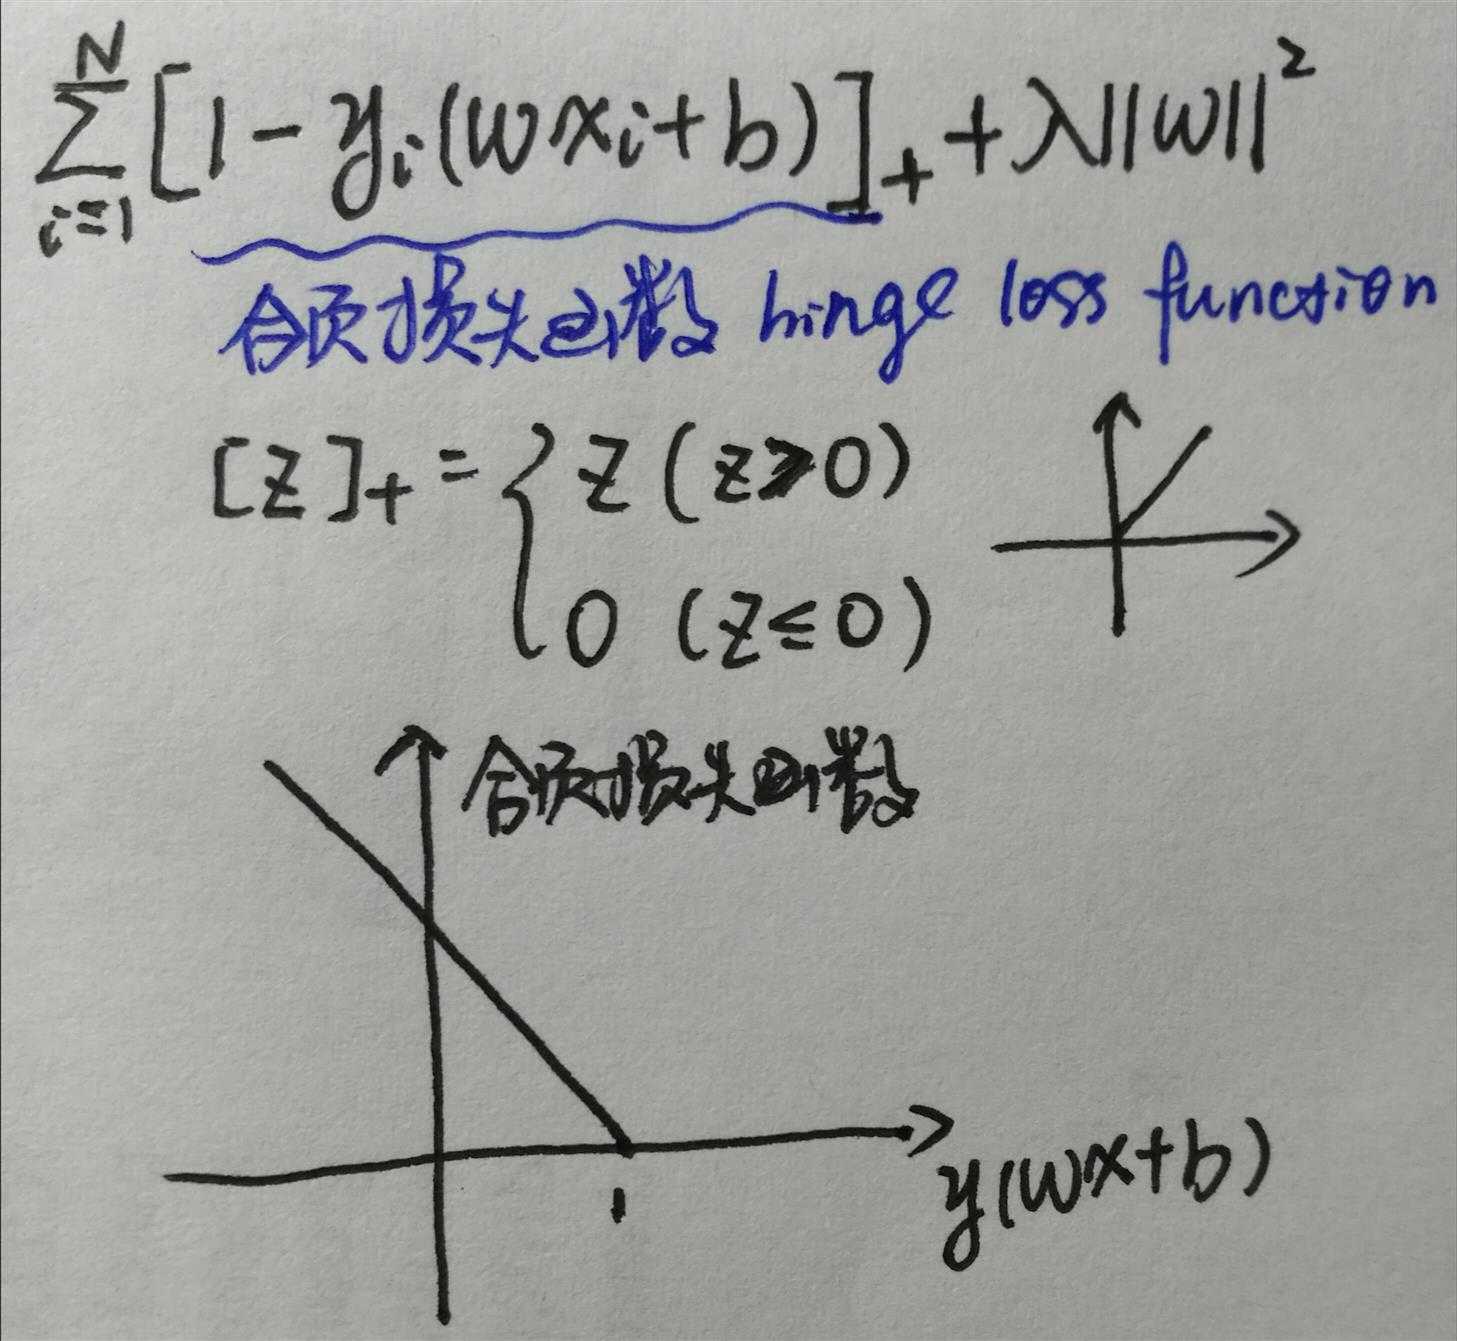 ∑_{i=1}^{N} [1 - y_i(wx_i + b)]_+ + λ||w||²
合页损失函数 hinge loss function
[z]_+ = { z (z≥0)
0 (z≤0)
合页损失函数
1
y(wx+b)